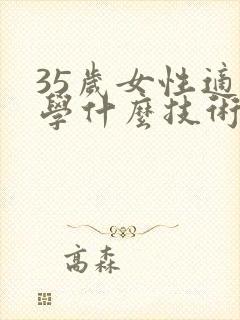 35歲女性適
學什麼技術
高森